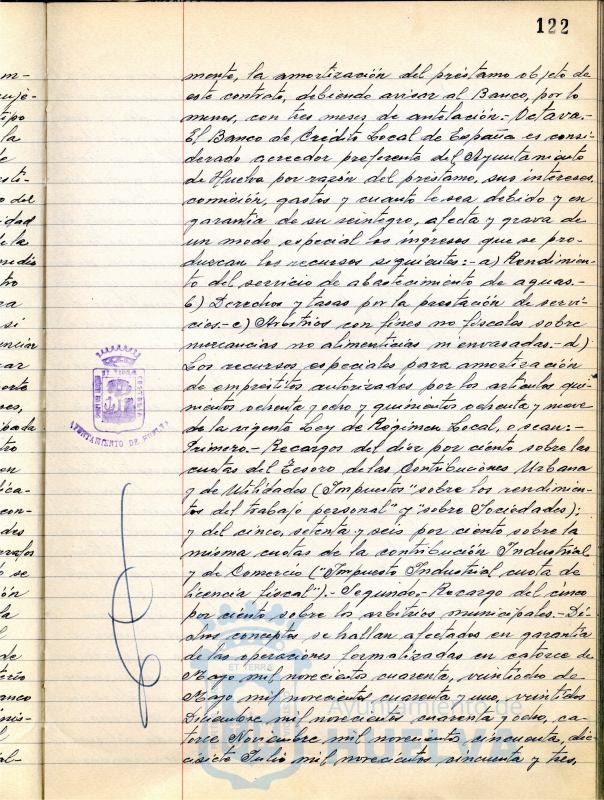 122
mento, la amortización del préstamo objeto de
este contrato, debiendo avisar al Banco, por lo
menos, con tres meses de antelación.- Octava.-
El Banco de Crédito Local de España es consi-
derado acreedor preferente del Ayuntamiento
de Huelva por razón del préstamo, sus intereses,
comisión, gastos y cuanto le sea debido y en
garantía de su reintegro, afecta y grava de
un modo especial los ingresos que se pro-
duzcan los recursos siguientes:- a) Rendimien-
to del servicio de abastecimiento de aguas.-
b) Derechos y tasas por la prestación de servi-
cios.- c) Arbitrios con fines no fiscales sobre
mercancías no alimenticias ni envasadas.- d)
Los recursos especiales para amortización
de empréstitos autorizados por los artículos qui-
nientos ochenta y ocho y quinientos ochenta y nueve
de la vigente Ley de Régimen Local, o sean:-
Primero.- Recargos del diez por ciento sobre las
cuotas del Tesoro de las Contribuciones Urbana
y de Utilidades ("Impuestos "sobre los rendimien-
tos del trabajo personal" y "sobre Sociedades);
y del cinco, setenta y seis por ciento sobre la
misma cuotas de la contribución Industrial
y de Comercio ("Impuesto Industrial cuota de
licencia fiscal").- Segundo.- Recargo del cinco
por ciento sobre los arbitrios municipales.- Di-
chos conceptos se hallan afectados en garantía
de las operaciones formalizadas en catorce de
Mayo mil novecientos cuarenta, veintiocho de
Mayo mil novecientos cuarenta y uno, veintidos
Diciembre mil novecientos cuarenta y ocho, ca-
torce Noviembre mil novecientos cincuenta, die-
cisiete Julio mil novecientos cincuenta y tres,
AYUNTAMIENTO DE HUELVA
Ayuntamiento de
HUELVA